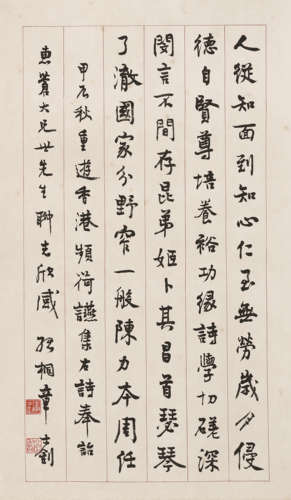 人從知面到知心仁至無勞歲月侵
德自賢尊培養裕功緣詩學切磋深
閔言不間存昆弟姬卜其昌首瑟琴
了澈國家分野窄一般陳力本周任
甲辰秋重遊香港頻荷讌集右詩奉詒
惠蓂大兄世先生聯志欣感 孤桐章士釗